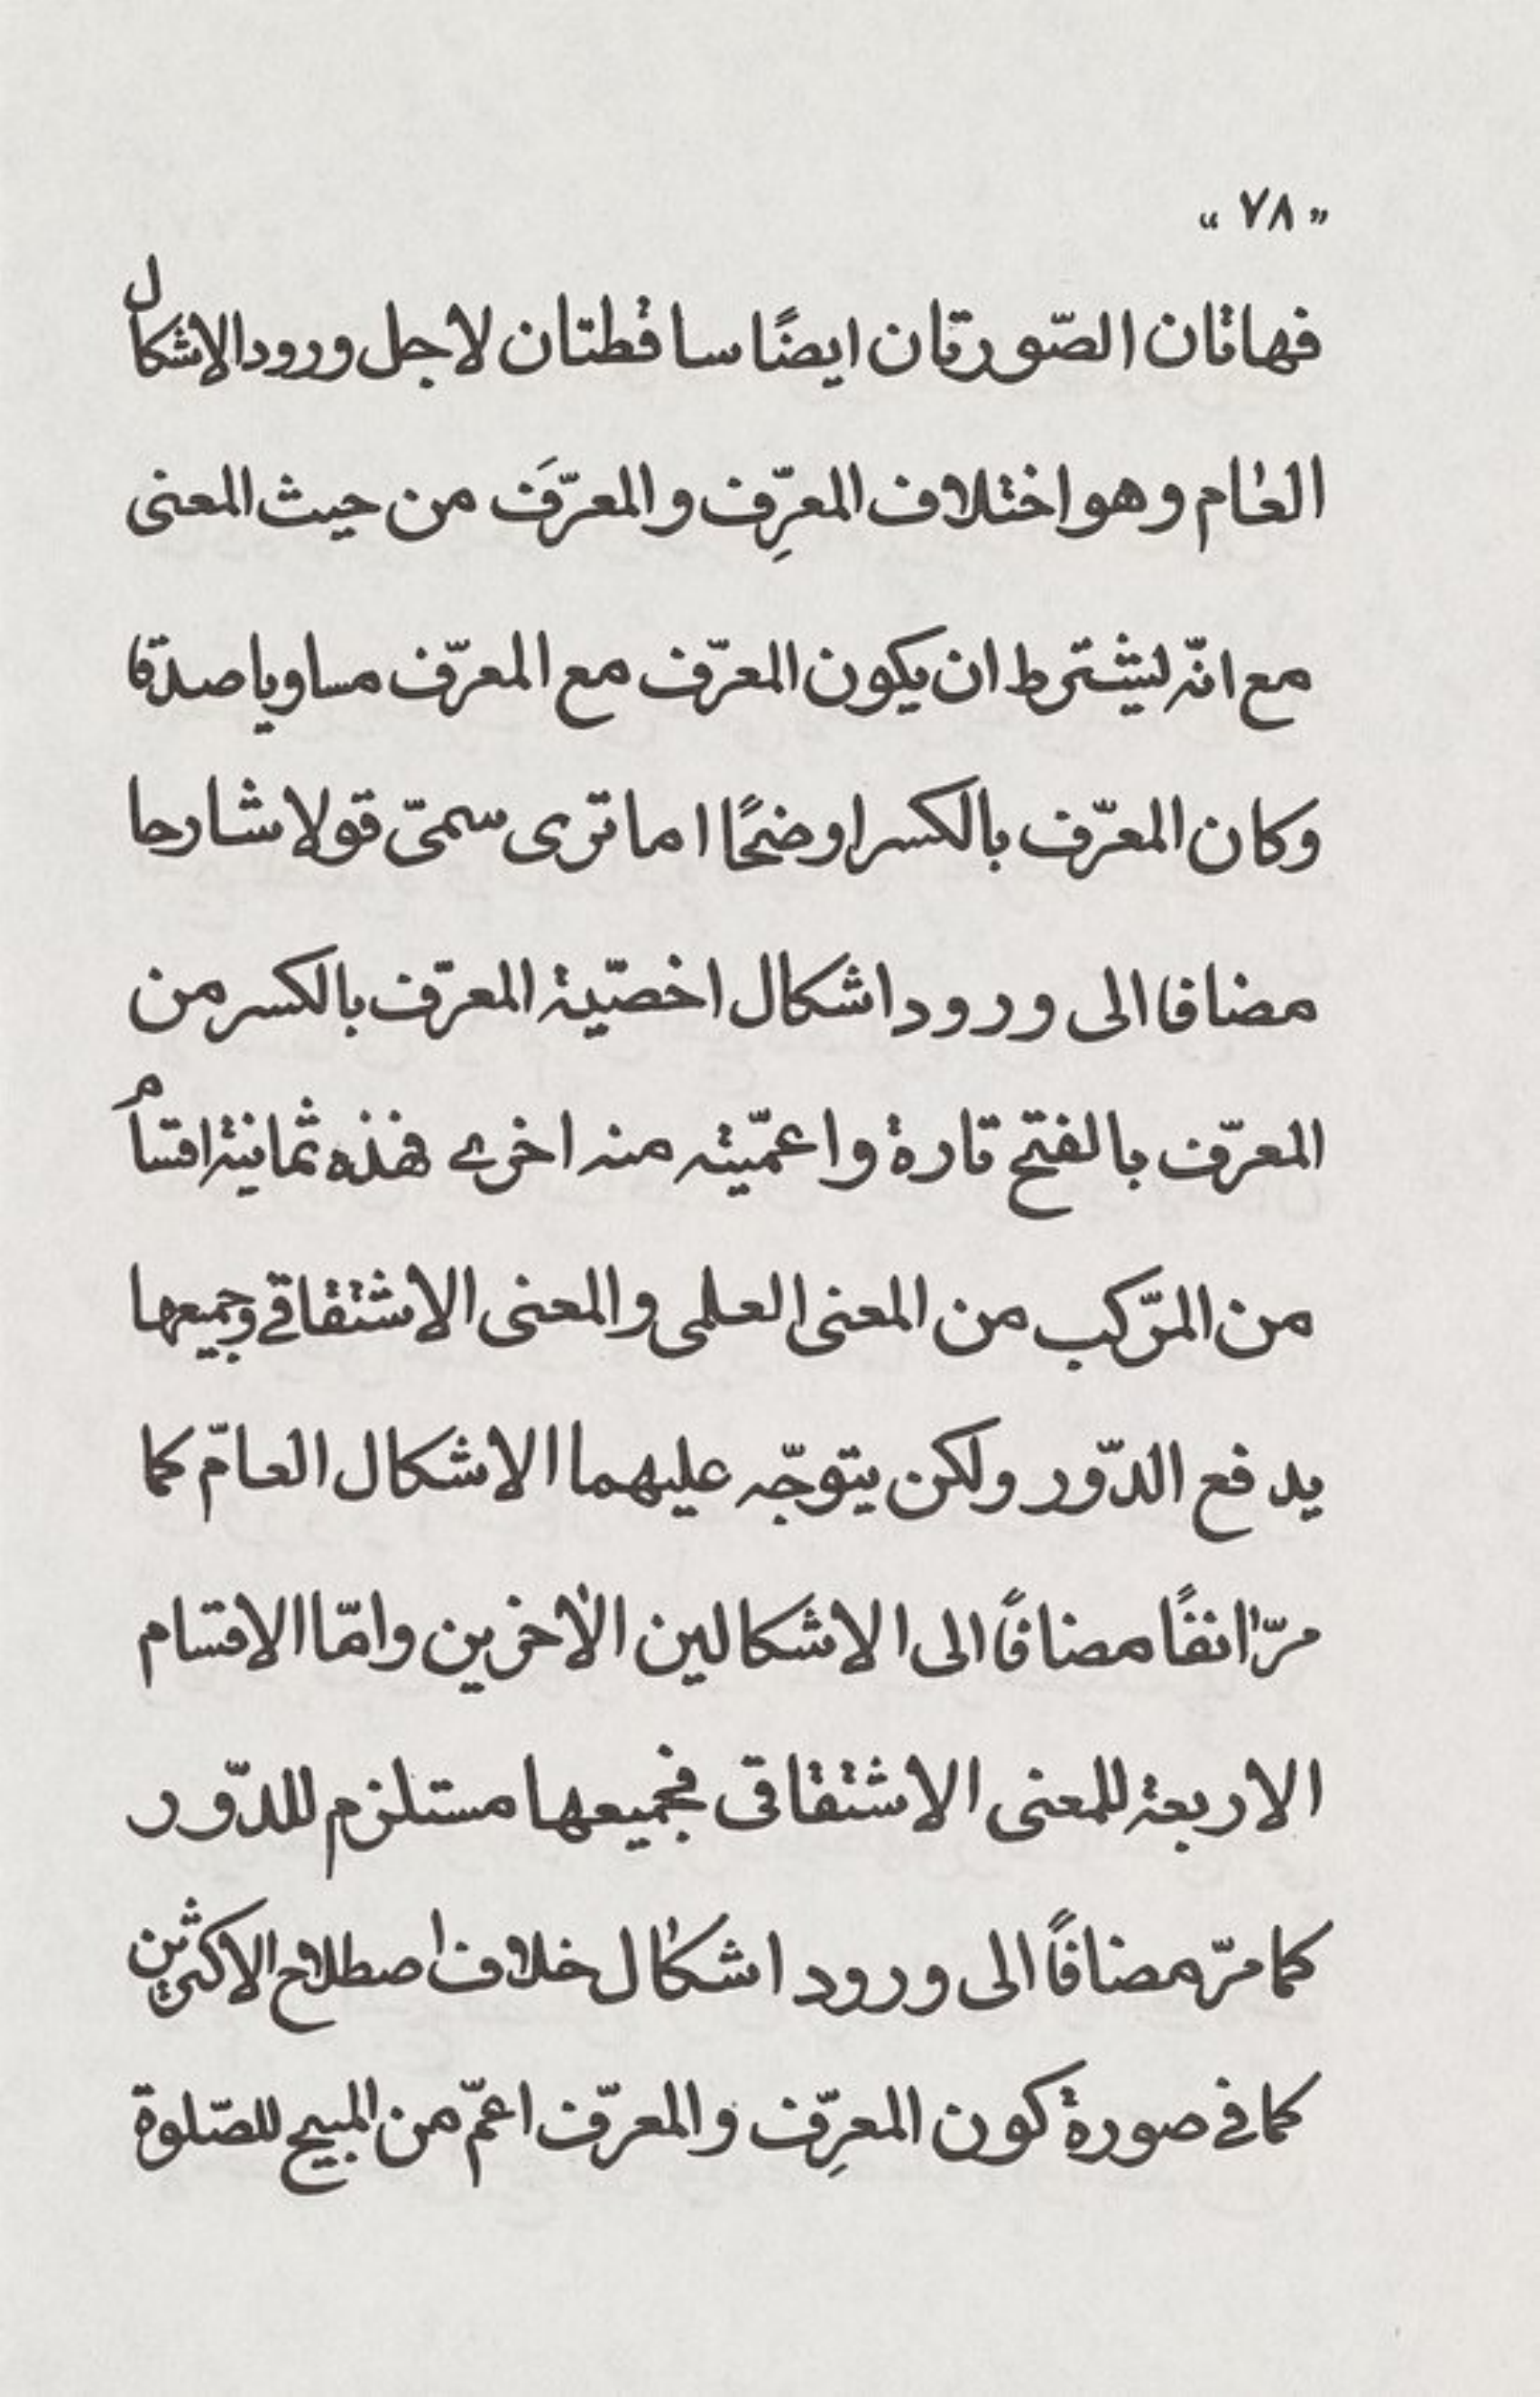 "٧٨"
فهاتان الصّورتان ايضًا ساقطتان لاجل ورود الاشكال
العام وهو اختلاف المعرِّف والمعرَّف من حيث المعنى
مع انّه ليشترط ان يكون المعرّف مع المعرّف مساويا صدقا
وكان المعرّف بالكسر اوضحًا اما ترى سمىّ قولا شارحا
مضافا الى ورود اشكال اخصّية المعرّف بالكسر من
المعرّف بالفتح تارة واعمّيته منه اخرى فهذه ثمانية اقسام
من المرّكب من المعنى العلمى والمعنى الاشتقاقى وجميعها
يدفع الدّور ولكن يتوجّه عليهما الاشكال العامّ كما
مرّ انفًا مضافًا الى الاشكالين الأخرين وامّا الاقسام
الاربعة للمعنى الاشتقاقى فجميعها مستلزم للدّور
كما مرّ مضافًا الى ورود اشكال خلاف اصطلاح الاكثرين
كما فى صورة كون المعرِّف والمعرّف اعمّ من المبيح للصّلوة